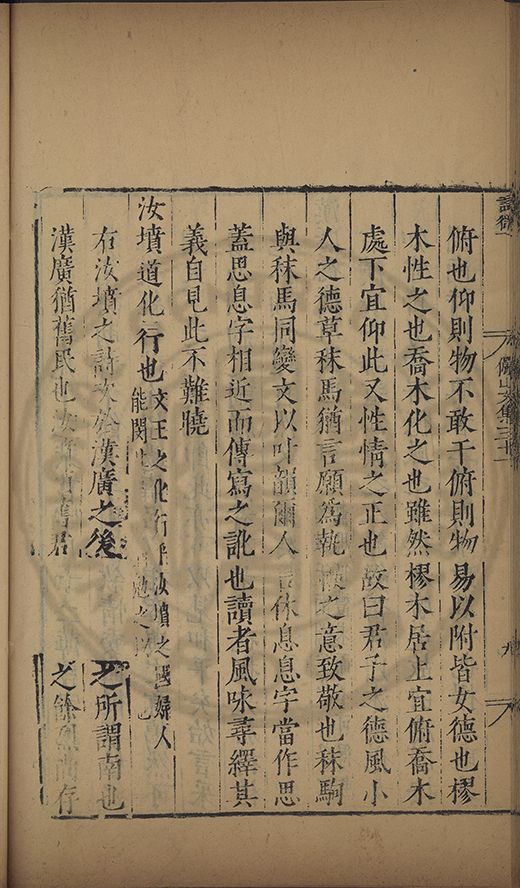 俯也仰則物不敢干俯則物易以附皆女德也樛
木性之也喬木化之也雖然樛木居上宜俯喬木
處下宜仰此又性情之正也故曰君子之德風小
人之德草秣馬猶言願爲執之意致敬也秣駒
與秣馬同變文以叶韻爾人言休息息字當作思
蓋思息字相近而傳寫之訛也讀者風味尋繹其
義自見此不難曉
汝墳道化行也文王之化行乎汝墳之國婦人
能閔勉之以
右汝墳之詩次於漢廣之後之所謂南也
漢廣猶舊民也汝墳舊君之餘存